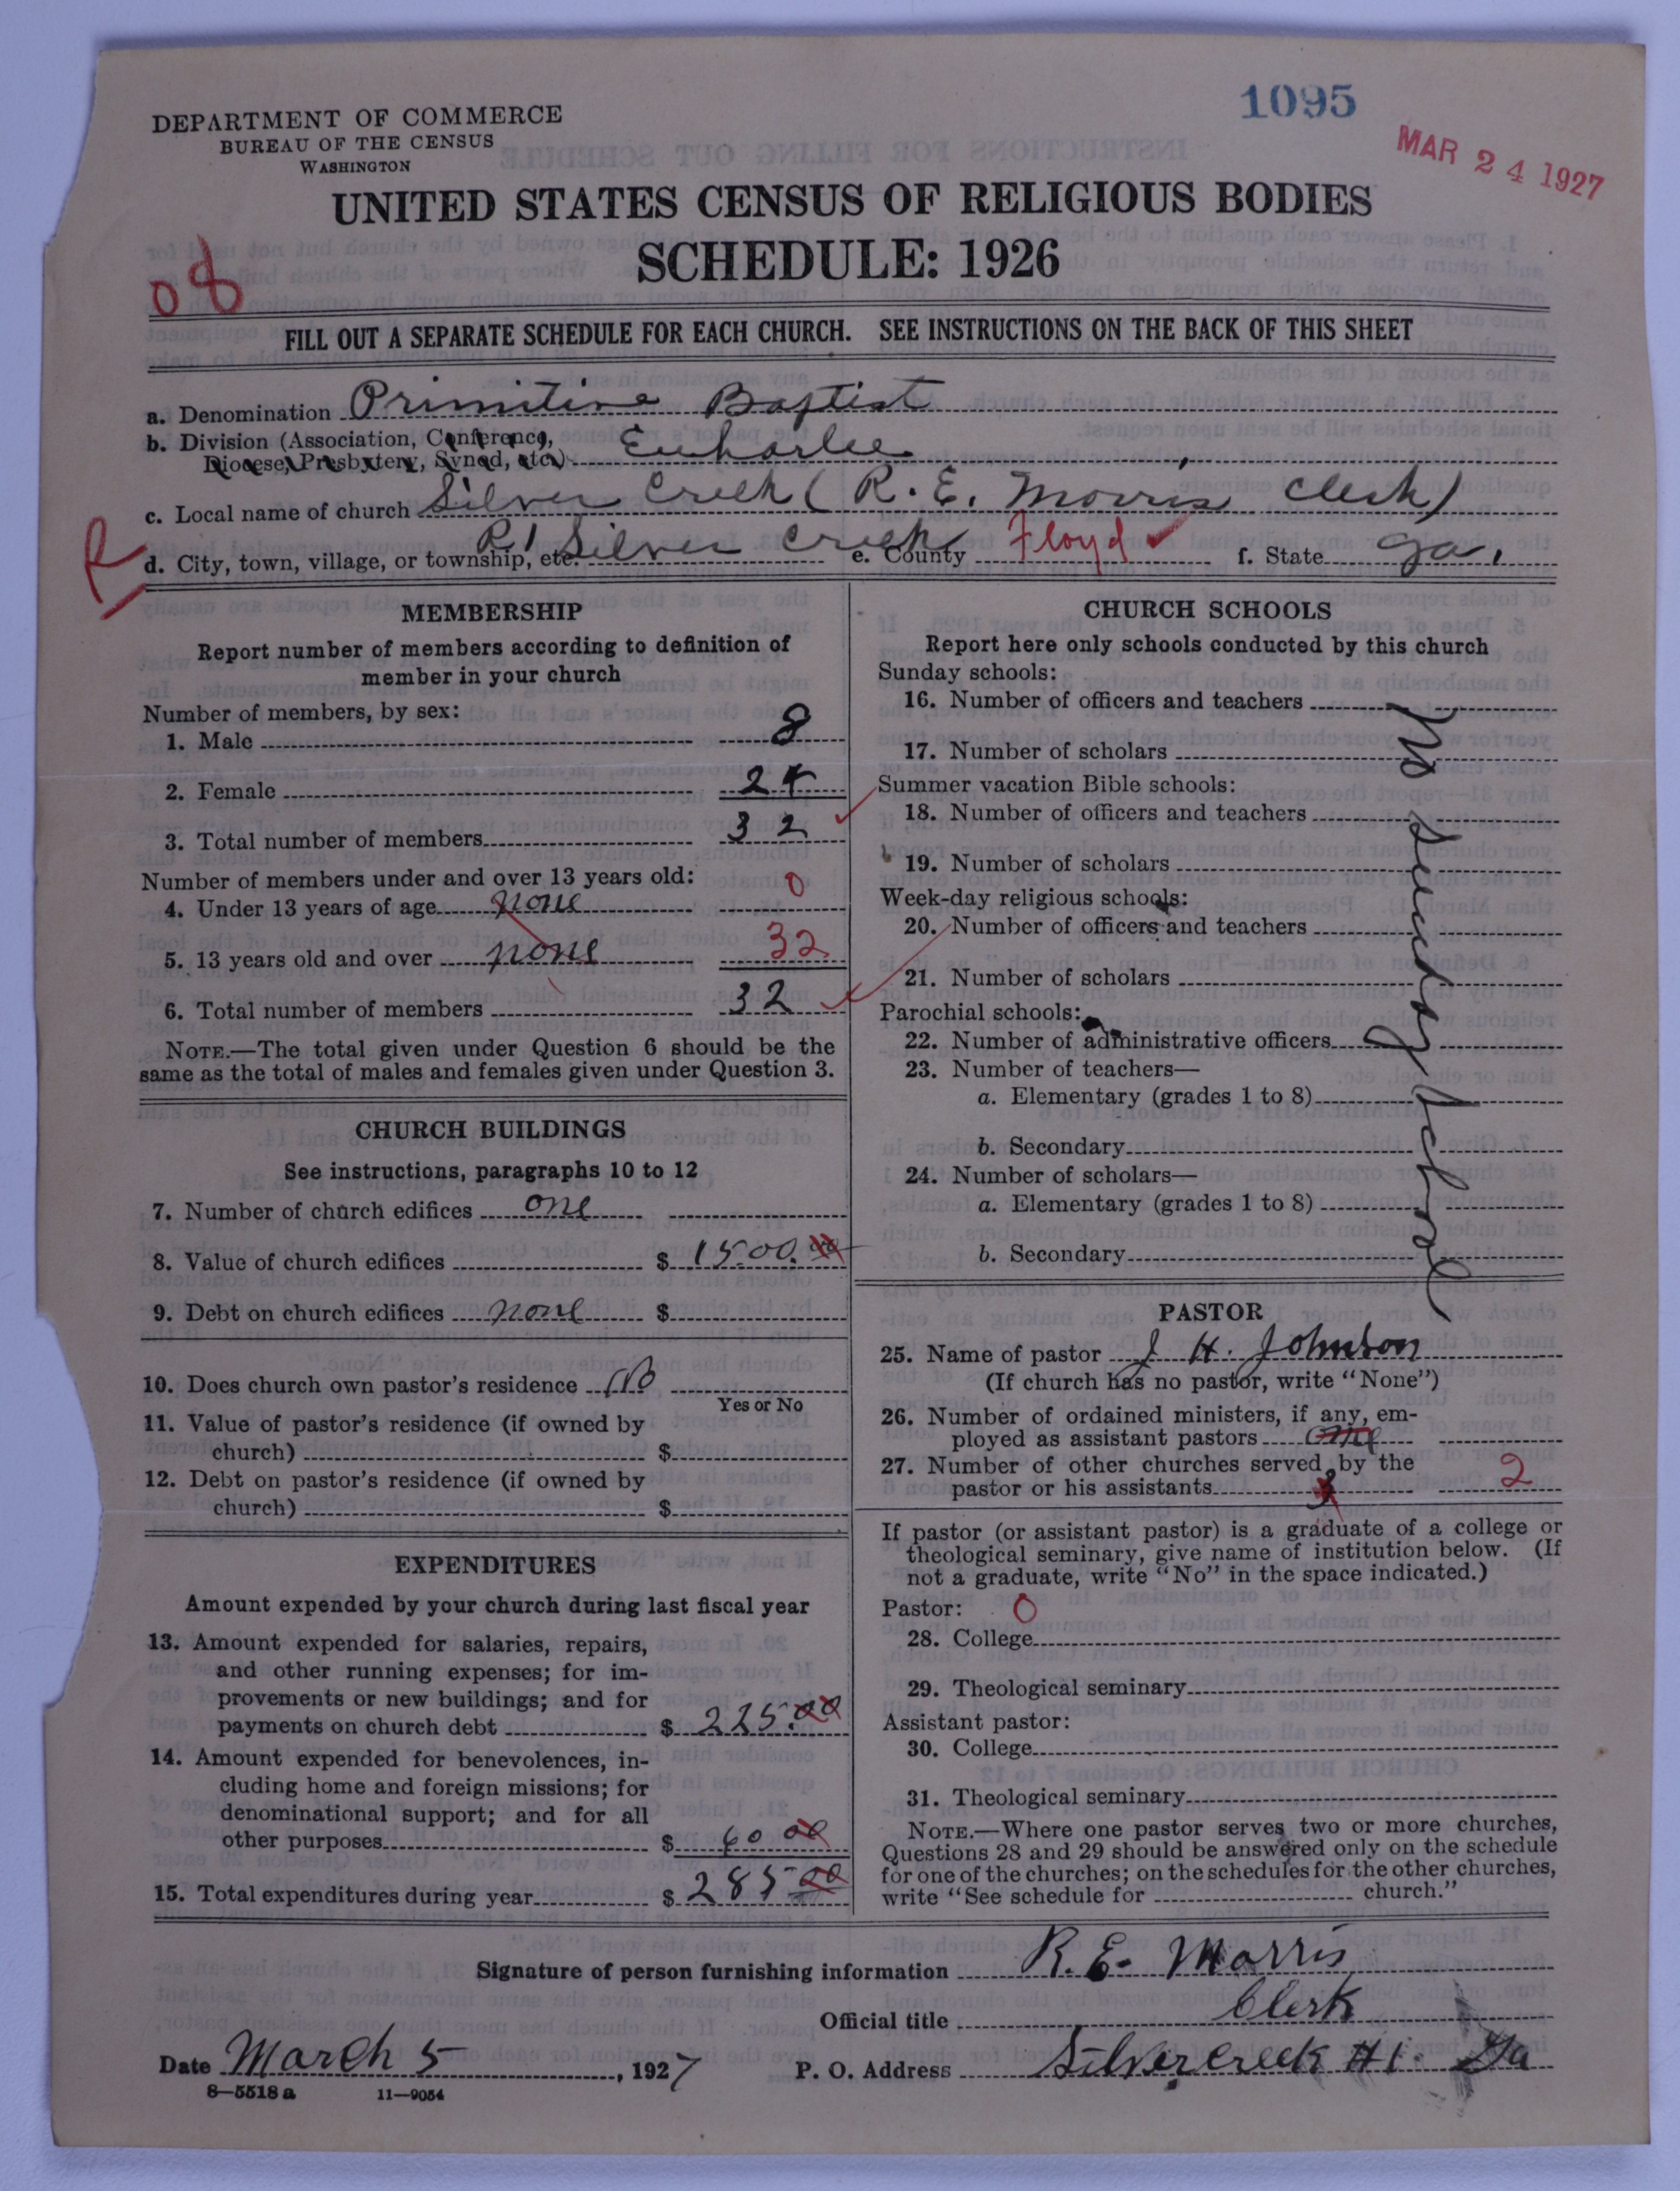 1095
MAR 24 1927
DEPARTMENT OF COMMERCE
BUREAU OF THE CENSUS
WASHINGTON
UNITED STATES CENSUS OF RELIGIOUS BODIES
SCHEDULE: 1926
08
FILL OUT A SEPARATE SCHEDULE FOR EACH CHURCH. SEE INSTRUCTIONS ON THE BACK OF THIS SHEET
a. Denomination Primitive Baptist
b. Division (Association, Conference,
Diocese, Presbytery, Synod, etc.) Euharlee
c. Local name of church Silver Creek (R. E. Morris Clerk)
R
d. City, town, village, or township, etc. R1 Silver Creek e. County Floyd ✓ f. State Ga.
MEMBERSHIP
Report number of members according to definition of
member in your church
Number of members, by sex:
1. Male 8
2. Female 24
3. Total number of members 32
Number of members under and over 13 years old:
4. Under 13 years of age none 0
5. 13 years old and over none 32
6. Total number of members 32
NOTE.—The total given under Question 6 should be the
same as the total of males and females given under Question 3.
CHURCH BUILDINGS
See instructions, paragraphs 10 to 12
7. Number of church edifices one
8. Value of church edifices $ 1500.00
9. Debt on church edifices none $
10. Does church own pastor's residence No
Yes or No
11. Value of pastor's residence (if owned by
church) $
12. Debt on pastor's residence (if owned by
church) $
EXPENDITURES
Amount expended by your church during last fiscal year
13. Amount expended for salaries, repairs,
and other running expenses; for im-
provements or new buildings; and for
payments on church debt $ 225.00
14. Amount expended for benevolences, in-
cluding home and foreign missions; for
denominational support; and for all
other purposes $ 60 00
15. Total expenditures during year $ 285 00
CHURCH SCHOOLS
Report here only schools conducted by this church
Sunday schools:
16. Number of officers and teachers
17. Number of scholars
Summer vacation Bible schools:
18. Number of officers and teachers
19. Number of scholars
Week-day religious schools:
20. Number of officers and teachers
21. Number of scholars
Parochial schools:
22. Number of administrative officers
23. Number of teachers—
a. Elementary (grades 1 to 8)
b. Secondary
24. Number of scholars—
a. Elementary (grades 1 to 8)
b. Secondary
No Sunday School
PASTOR
25. Name of pastor J. H. Johnson
(If church has no pastor, write "None")
26. Number of ordained ministers, if any, em-
ployed as assistant pastors one
27. Number of other churches served by the
pastor or his assistants 3 2
If pastor (or assistant pastor) is a graduate of a college or
theological seminary, give name of institution below. (If
not a graduate, write "No" in the space indicated.)
Pastor: 0
28. College
29. Theological seminary
Assistant pastor:
30. College
31. Theological seminary
NOTE.—Where one pastor serves two or more churches,
Questions 28 and 29 should be answered only on the schedule
for one of the churches; on the schedules for the other churches,
write "See schedule for church."
Signature of person furnishing information R. E. Morris
Official title Clerk
Date March 5, 1927 P. O. Address Silvercreek #1. Ga
8—5518 a 11—9054